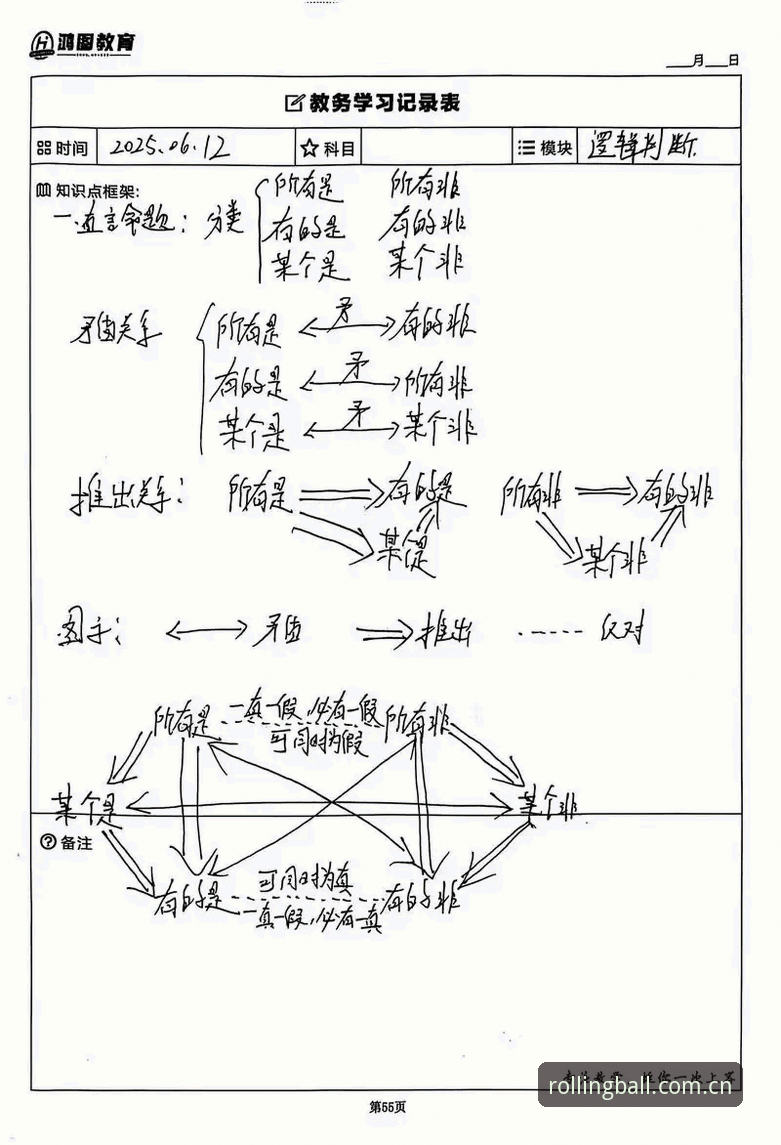 鸿图教育
___月___日
教务学习记录表
时间 2025.06.12 科目 模块 逻辑判断.
知识点框架:
一.直言命题: 分类
所有是 所有非
有的是 有的非
某个是 某个非
矛盾关系
所有是 矛 有的非
有的是 矛 所有非
某个是 矛 某个非
推出关系: 所有是 有的是 所有非 有的非
某个是 某个非
图示: 矛盾 推出 反对
所有是 一真一假,必有一假 所有非
可同时为假
某个是 某个非
备注
可同时为真
有的是 有的非
一真一假,必有一真
第55页
rollingball.com.cn